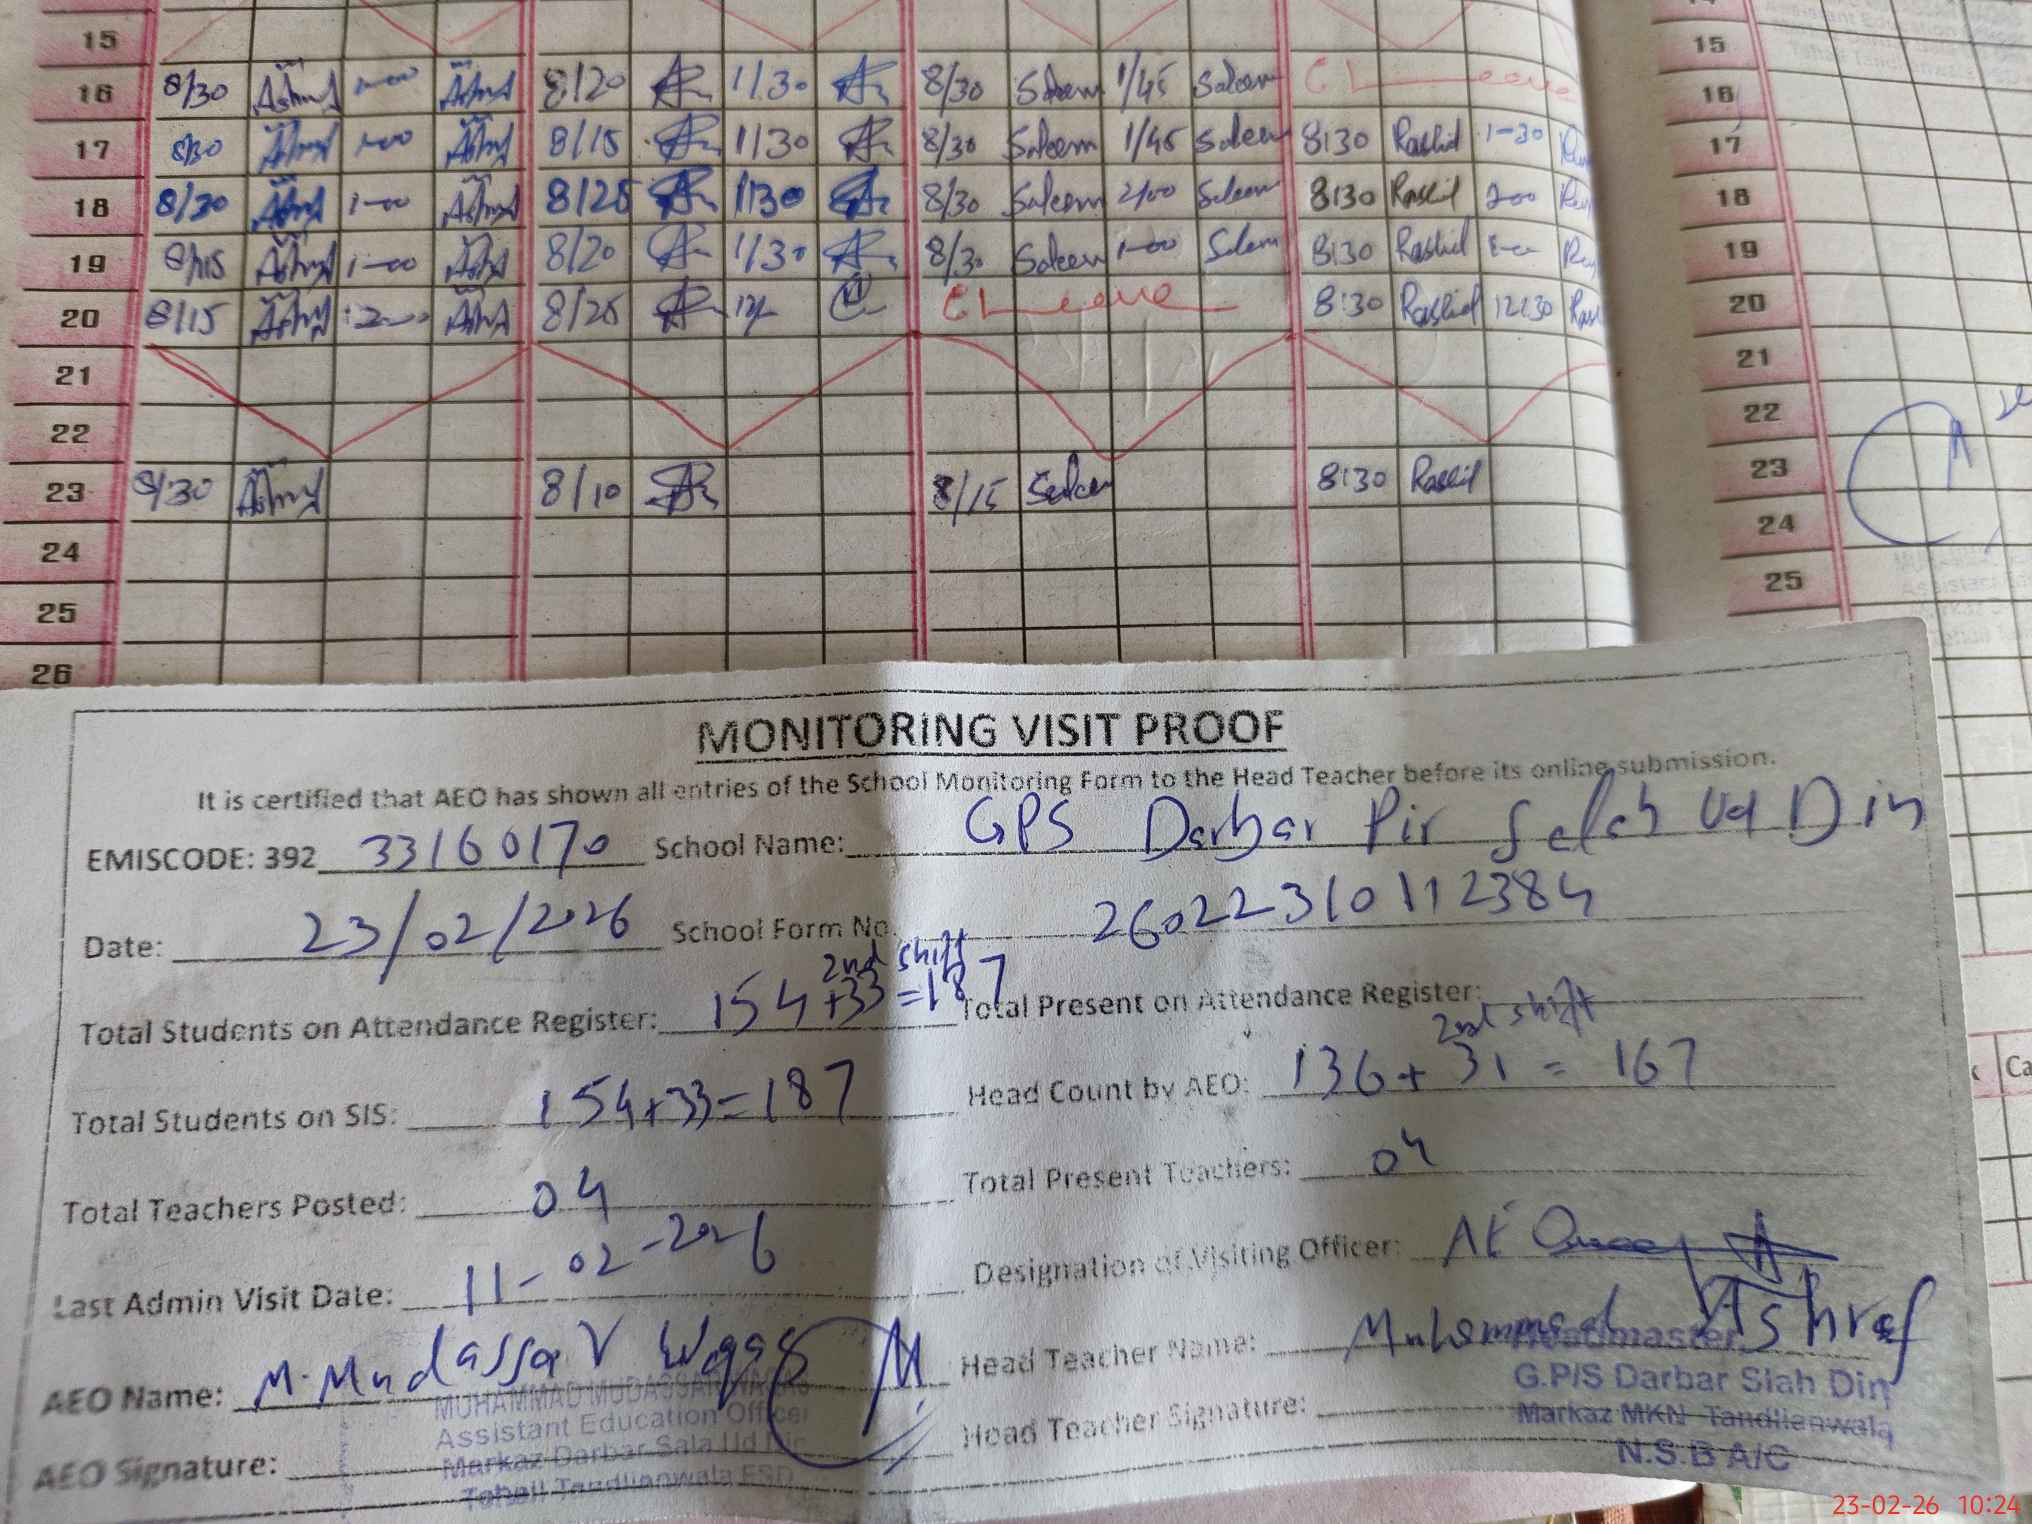 15 15
16 8/30 1-00 8/20 1/30 8/30 Saleem 1/45 Saleem C Leave 16
17 8/30 1-00 8/15 1/30 8/30 Saleem 1/45 Saleem 8:30 Rashid 1-30 17
18 8/30 1-00 8/25 1/30 8/30 Saleem 2/00 Saleem 8:30 Rashid 2-00 18
19 8/15 1-00 8/20 1/30 8/30 Saleem 1-00 Saleem 8:30 Rashid 19
20 8/15 8/25 C Leave 8:30 Rashid 12:30 20
21 21
22 22
23 8/30 8/10 8/15 Saleem 8:30 Rashid 23
24 24
25 25
26
MONITORING VISIT PROOF
It is certified that AEO has shown all entries of the School Monitoring Form to the Head Teacher before its online submission.
EMISCODE: 392 33160170 School Name: GPS Darbar Pir Salah Ud Din
Date: 23/02/2026 School Form No. 26022310112384
2nd shift
Total Students on Attendance Register: 154+33=187 Total Present on Attendance Register:
2nd shift
Total Students on SIS: 154+33=187 Head Count by AEO: 136+31=167
Total Teachers Posted: 04 Total Present Teachers: 04
Last Admin Visit Date: 11-02-2026 Designation of Visiting Officer:
AEO Name: M. Mudassar Waqas Head Teacher Name: Muhammad Ashraf
MUHAMMAD MUDASSAR WAQAS Headmaster
Assistant Education Officer G.P/S Darbar Slah Din
AEO Signature: Head Teacher Signature:
Markaz Darbar Sala Ud Din Markaz MKN Tandlianwala
Tehsil Tandlianwala FSD N.S.B A/C
23-02-26 10:24